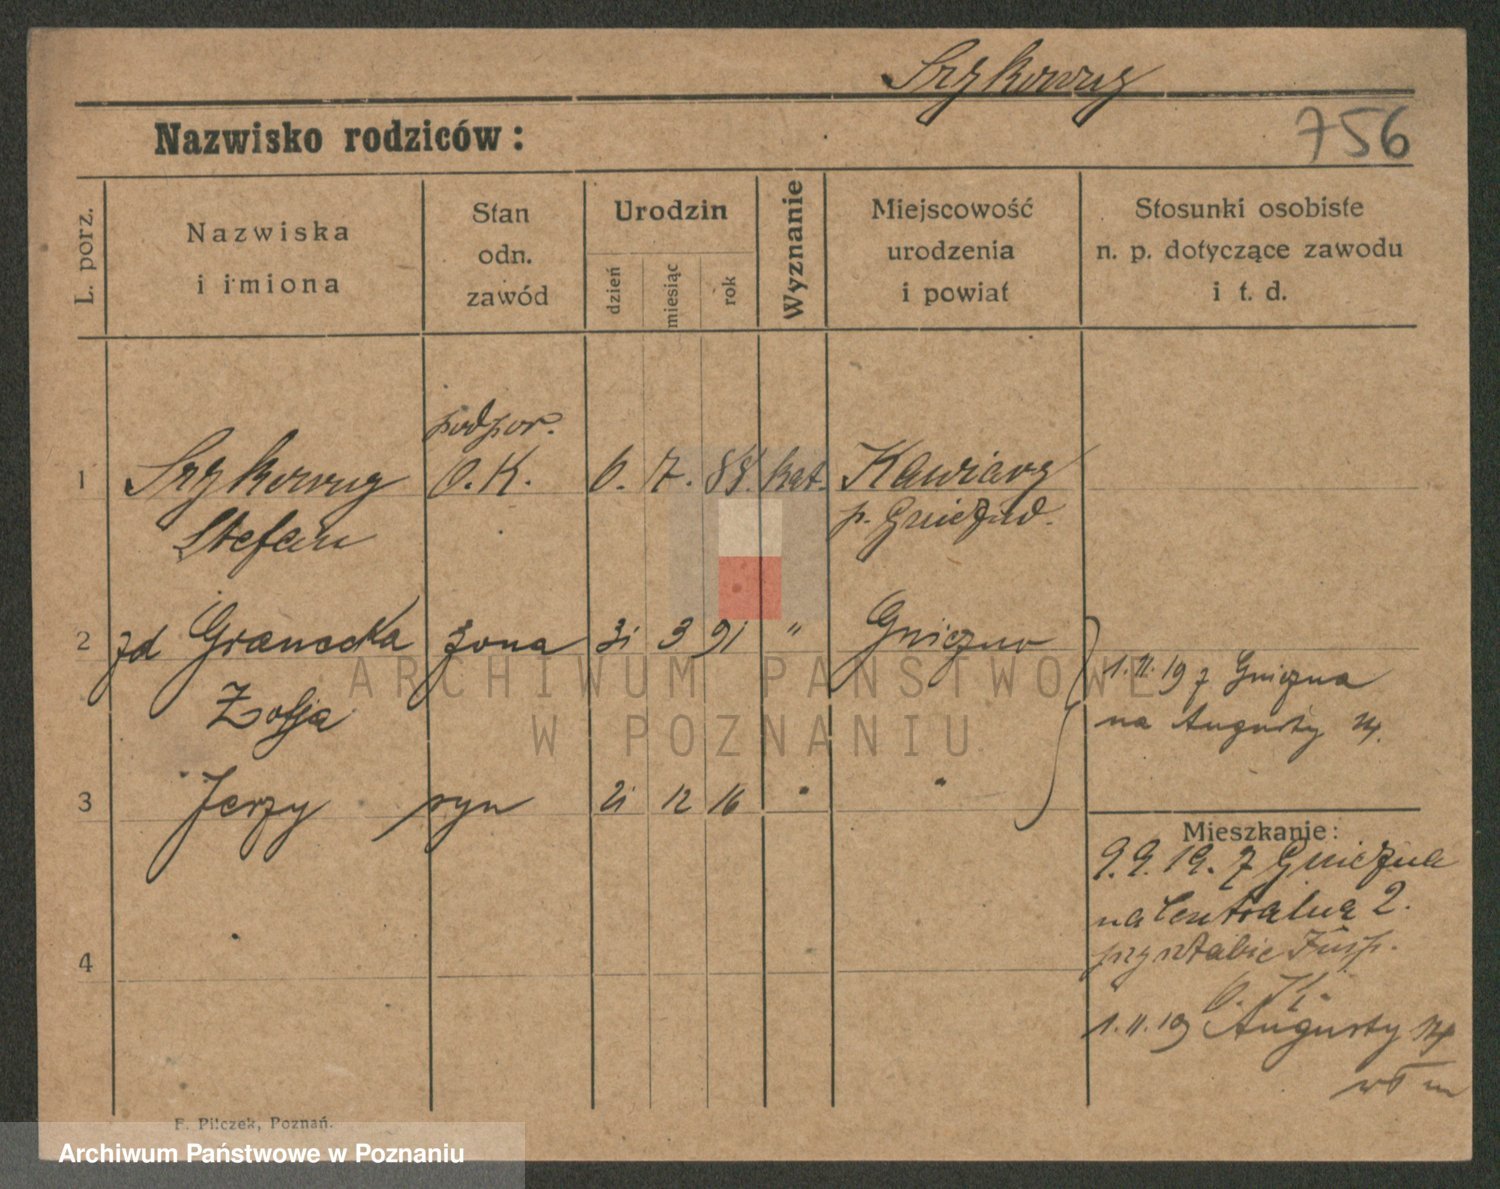 Szykowny
756
Nazwisko rodziców:
L. porz.
Nazwiska
i imiona
Stan
odn.
zawód
Urodzin
dzień
miesiąc
rok
Wyznanie
Miejscowość
urodzenia
i powiat
Stosunki osobiste
n. p. dotyczące zawodu
i t. d.
podpor.
1 Szykowny O.K. 6. 7. 88. kat.
Stefan p. Gniezno.
2 zd Granecka żona 31 3 91 " Gniezno
Zofja
1.11.19 z Gniezna
na Augusty
3 Jerzy syn 21 12 16 " "
Mieszkanie:
9.9.19. z Gniezna
na Centralną 2.
przy sztabie Insp.
O. K.
1.11.19 Augusty
4
F. Pilczek, Poznań.
ARCHIWUM PAŃSTWOWE
W POZNANIU
Archiwum Państwowe w Poznaniu